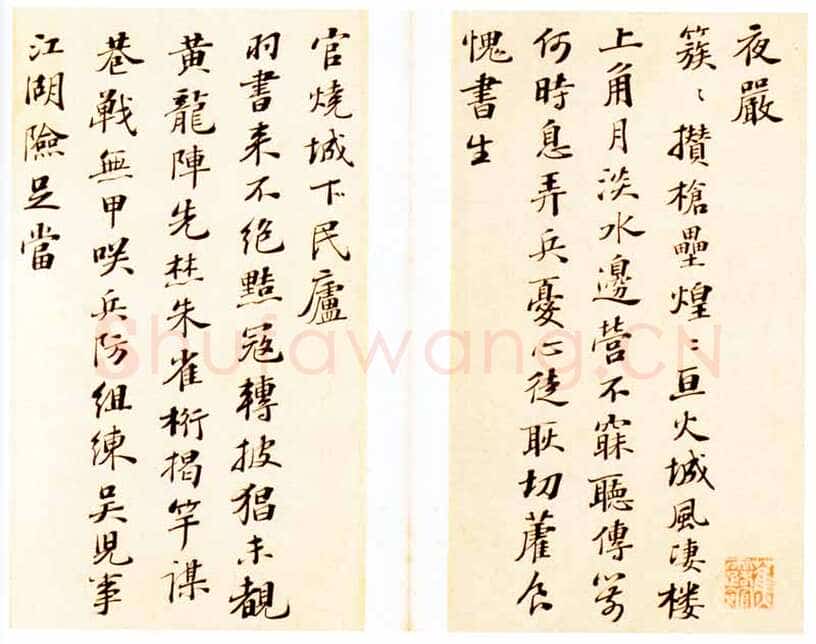 夜嚴
簇〻攢槍壘煌〻亘火城風凄楼
上角月淡水邊營不寐聽傳箭
何時息弄兵憂心徒耿切藿食
愧書生
官燒城下民廬
羽書来不绝黠寇轉披猖未覩
黄龍陣先焚朱雀桁揭竿謀
巷戰無甲咲兵防組練吴児事
江湖險足當
Shufawang.CN